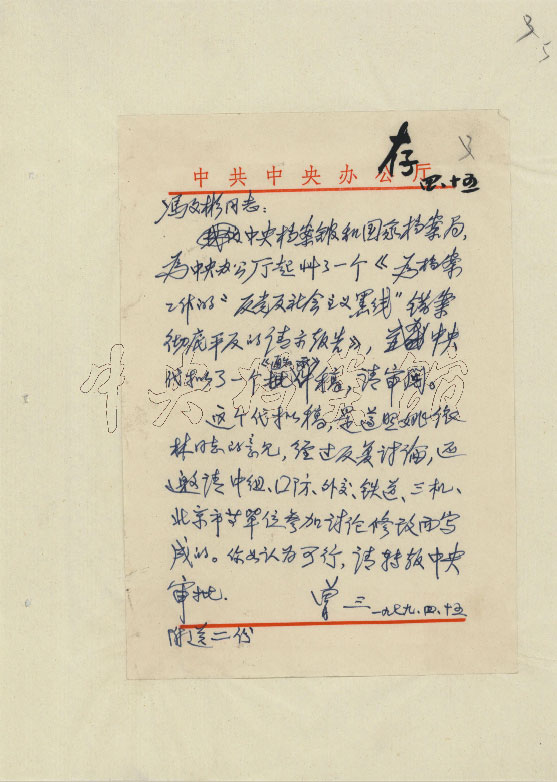 3
5
存
四.十五
中共中央办公厅
冯文彬同志：
中央档案馆和国家档案局，
为中央办公厅起艸了一个《为档案
工作的“反党反社会主义黑线”错案
彻底平反的请示报告》，并替中央
代拟了一个“批”件稿，请审阅。
这个代拟稿，是遵照姚依
林同志的意见，经过反复讨论，还
邀请中组、口防、外交、铁道、三机、
北京市等单位参加讨论修改而写
成的。你如认为可行，请转报中央
审批。
曾三 一九七九.四.十五
附送二份
中共档案馆